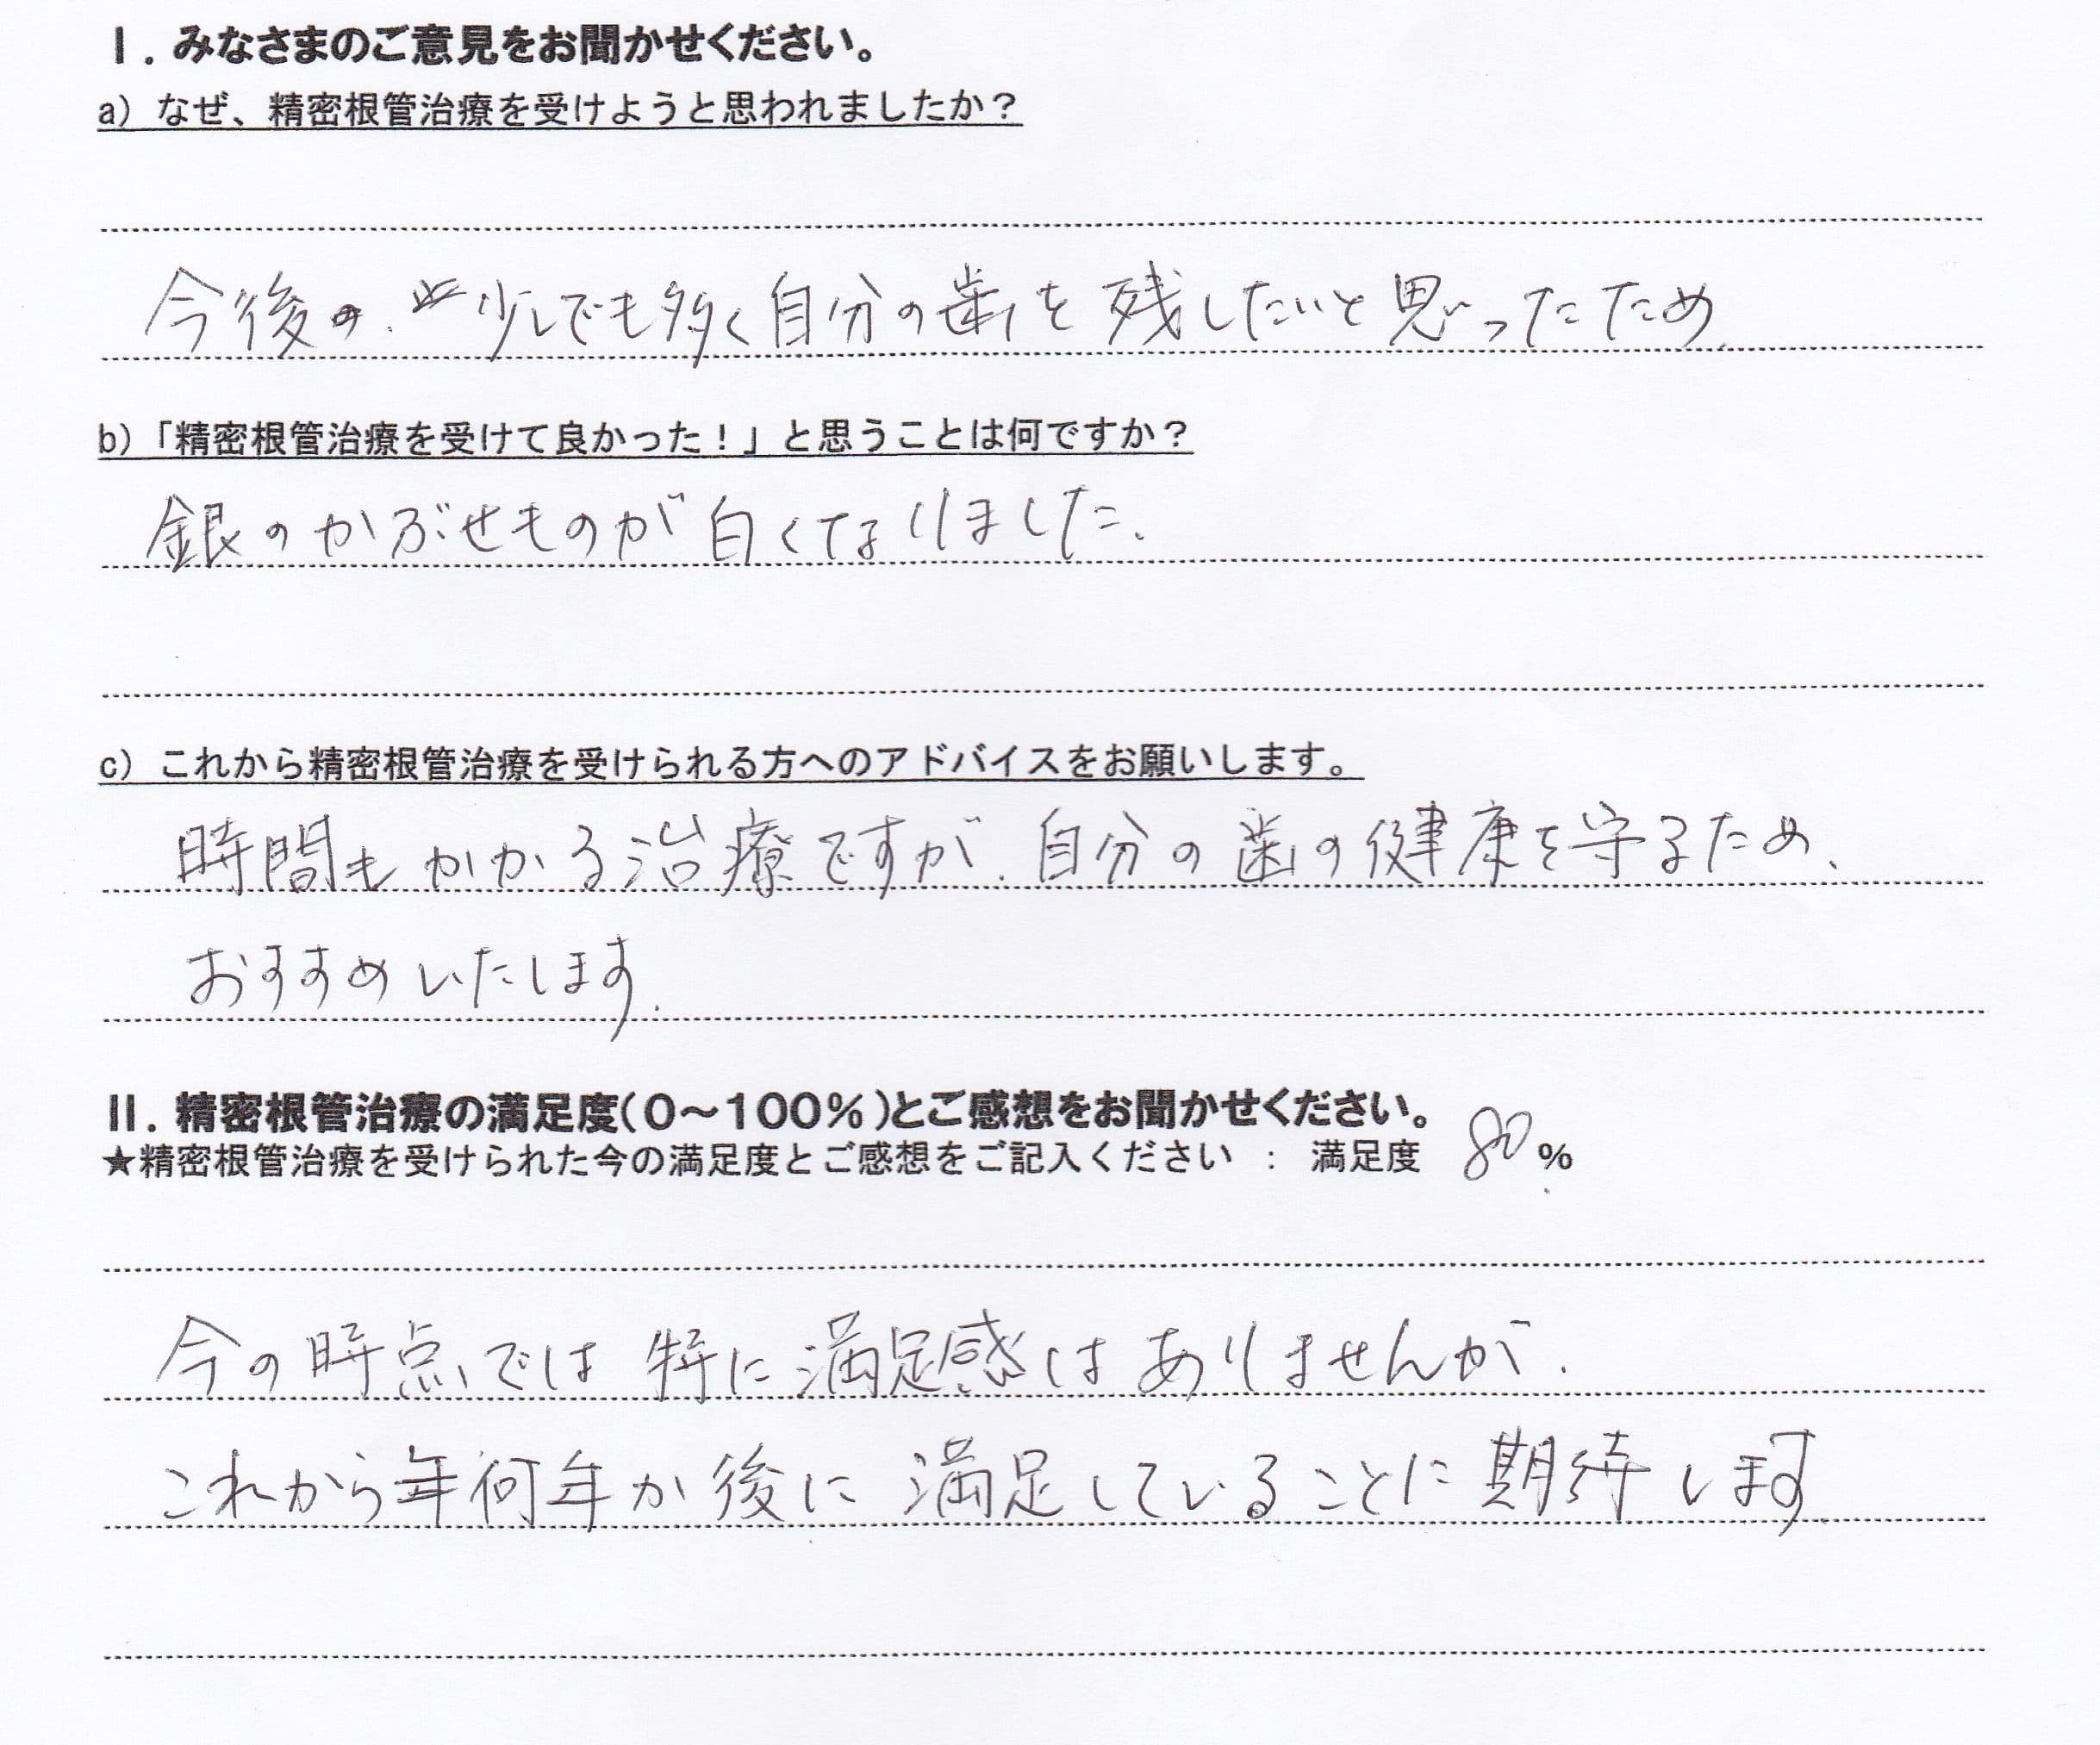 I. みなさまのご意見をお聞かせください。
a) なぜ、精密根管治療を受けようと思われましたか？
今後の、少しでも多く自分の歯を残したいと思ったため.
b)「精密根管治療を受けて良かった！」と思うことは何ですか？
銀のかぶせものが白くなりました.
c) これから精密根管治療を受けられる方へのアドバイスをお願いします。
時間もかかる治療ですが、自分の歯の健康を守るため、
おすすめいたします.
II. 精密根管治療の満足度(0～100%)とご感想をお聞かせください。
★精密根管治療を受けられた今の満足度とご感想をご記入ください ： 満足度 80%
今の時点では特に満足感はありませんが.
これから何年か後に満足していることに期待します.